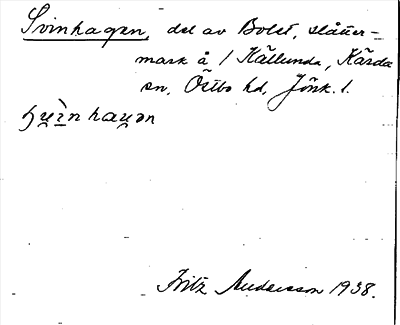 Svinhagen, del av Bolet, slåtter-
mark å 1 Källunda, Kärda
sn, Östbo hd, Jönk. l.
Fritz Andersson 1938.